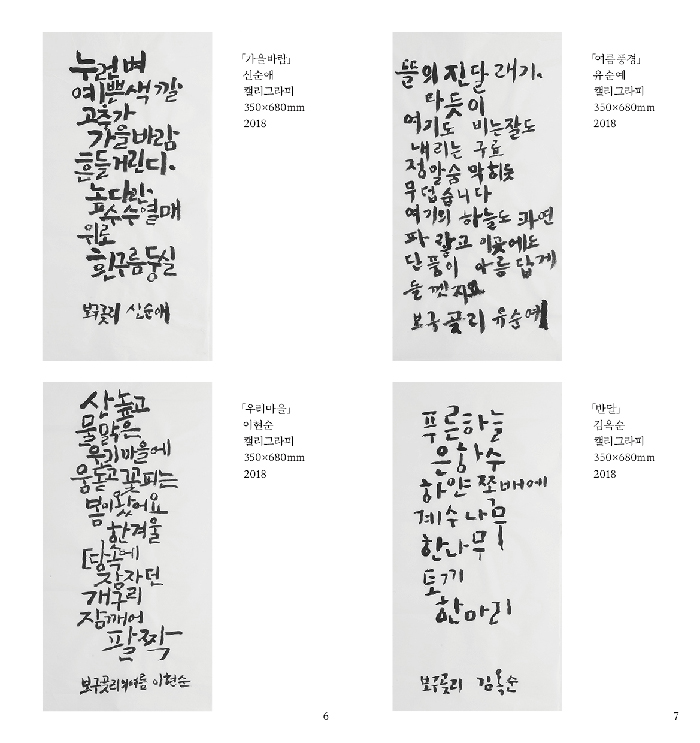 누런벼
예쁜색깔
고추가
가을바람
흔들거린다.
높다란
수수열매
위로
흰구름둥실
보구곶리 신순애
「가을바람」
신순애
캘리그라피
350×680mm
2018
뜰의 진달래가.
따듯이
여기도 비는잘도
내리는 구료
정말숨 막히듯
무덥습니다
여기의 하늘도 과연
파랗고 이곳에도
단풍이 아름답게
들겠지요
보구곶리 유순예
「여름풍경」
유순예
캘리그라피
350×680mm
2018
산높고
물맑은
우리마을에
움돋고꽃피는
봄이왔어요
한겨울
땅속에
잠자던
개구리
잠깨어
팔짝
보구곶리의여름 이현순
「우리마을」
이현순
캘리그라피
350×680mm
2018
푸른하늘
은하수
하얀쪽배에
계수나무
한나무
토끼
한마리
보구곶리 김옥순
「반달」
김옥순
캘리그라피
350×680mm
2018
6
7